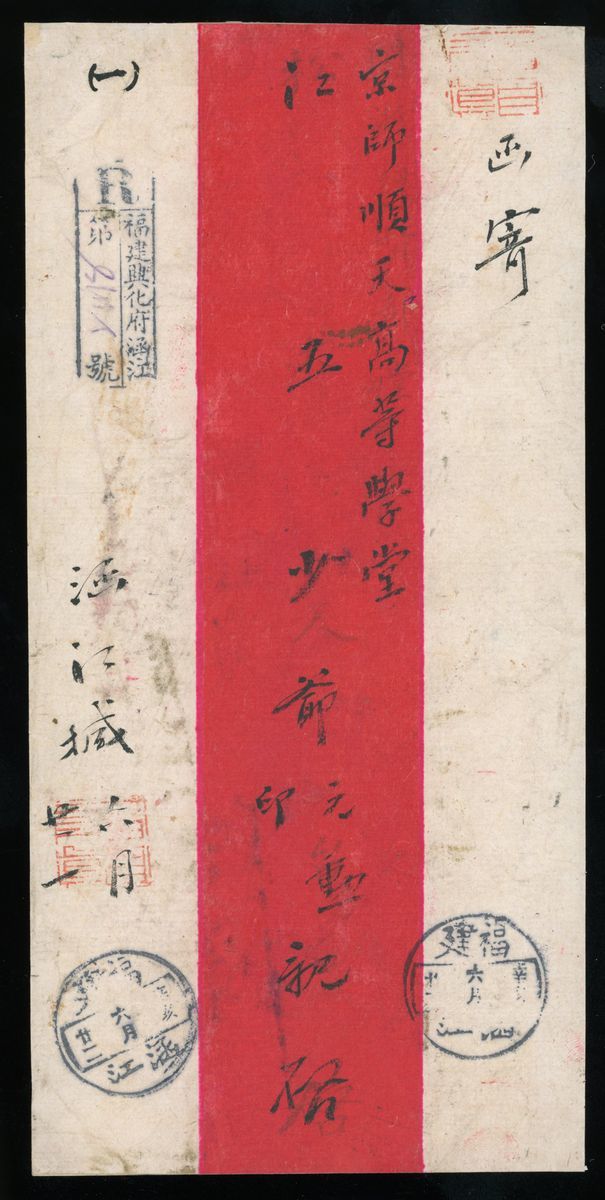 函寄
京師順天高等學堂
江五少大人爺
元勳
印
親啓
(一)
R
福建興化府涵江
第
號
涵江緘
六月
廿一
福建
辛亥
六月
廿二
涵江
福建
辛亥
六月
廿二
涵江